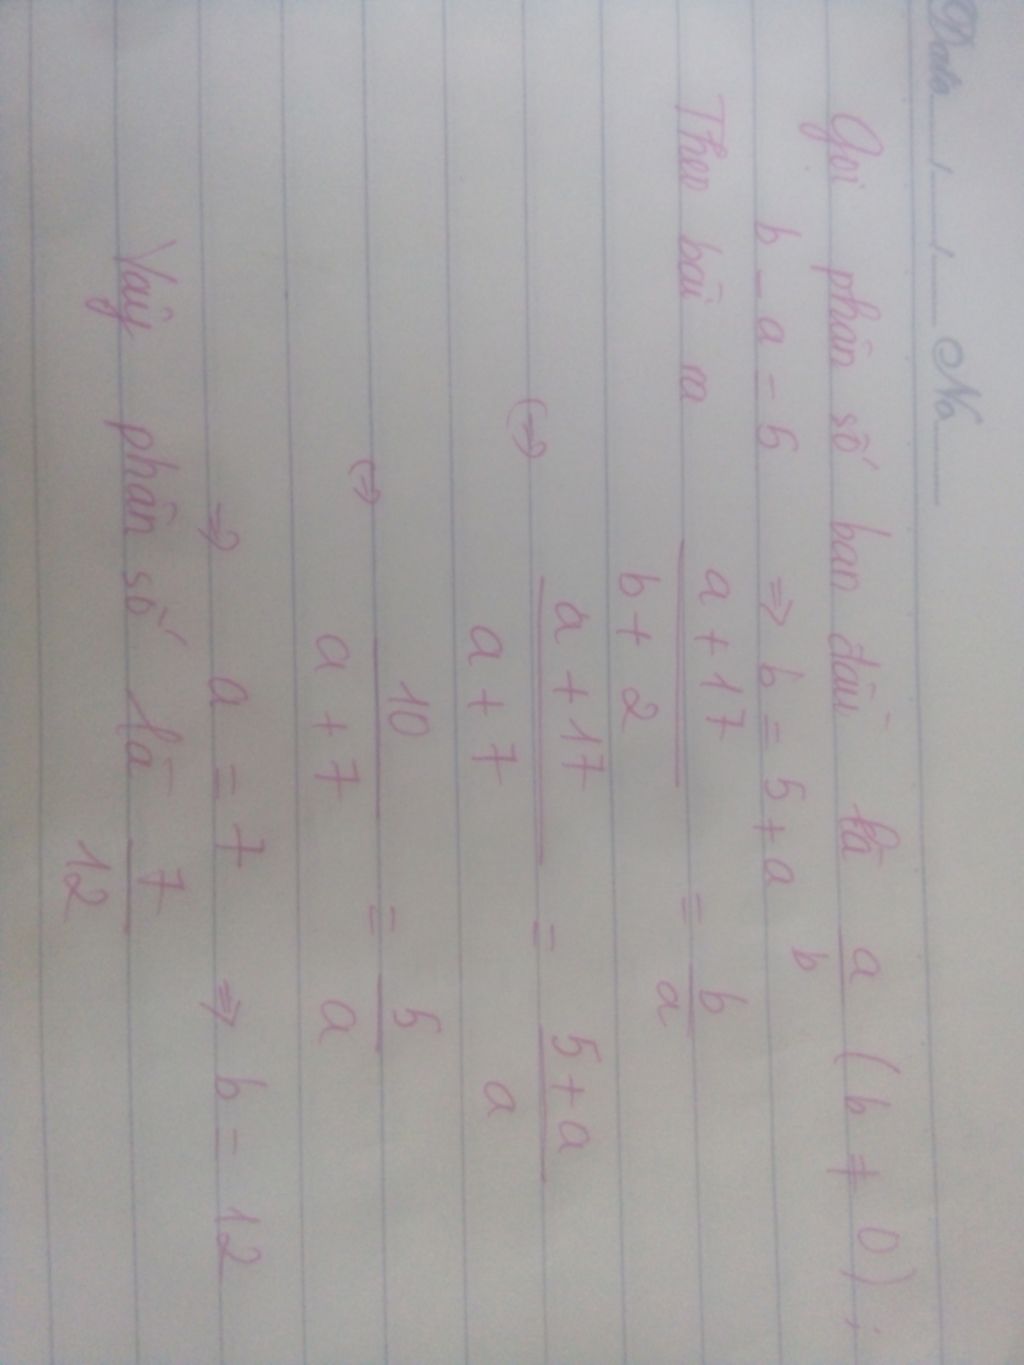 Date / / No
Gọi phân số ban đầu là a/b (b ≠ 0) ;
b - a = 5 ⇒ b = 5 + a
Theo bài ra (a + 17)/(b + 2) = b/a
⇔ (a + 17)/(a + 7) = (5 + a)/a
⇔ 10/(a + 7) = 5/a
⇒ a = 7 ⇒ b = 12
Vậy phân số là 7/12